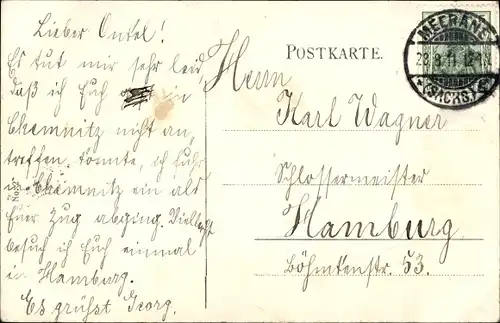 Lieber Onkel!
Es tut mir sehr leid,
daß ich Euch in
Chemnitz nicht an,
treffen konnte, ich fuhr
in Chemnitz ein als
Euer Zug abging. Vielleicht
besuch ich Euch einmal
in Hamburg.
Es grüßt Georg.
POSTKARTE.
MEERANE
(SACHS.)
Herrn
Karl Wagner
Schlossermeister
Hamburg
Böhmkenstr. 53.